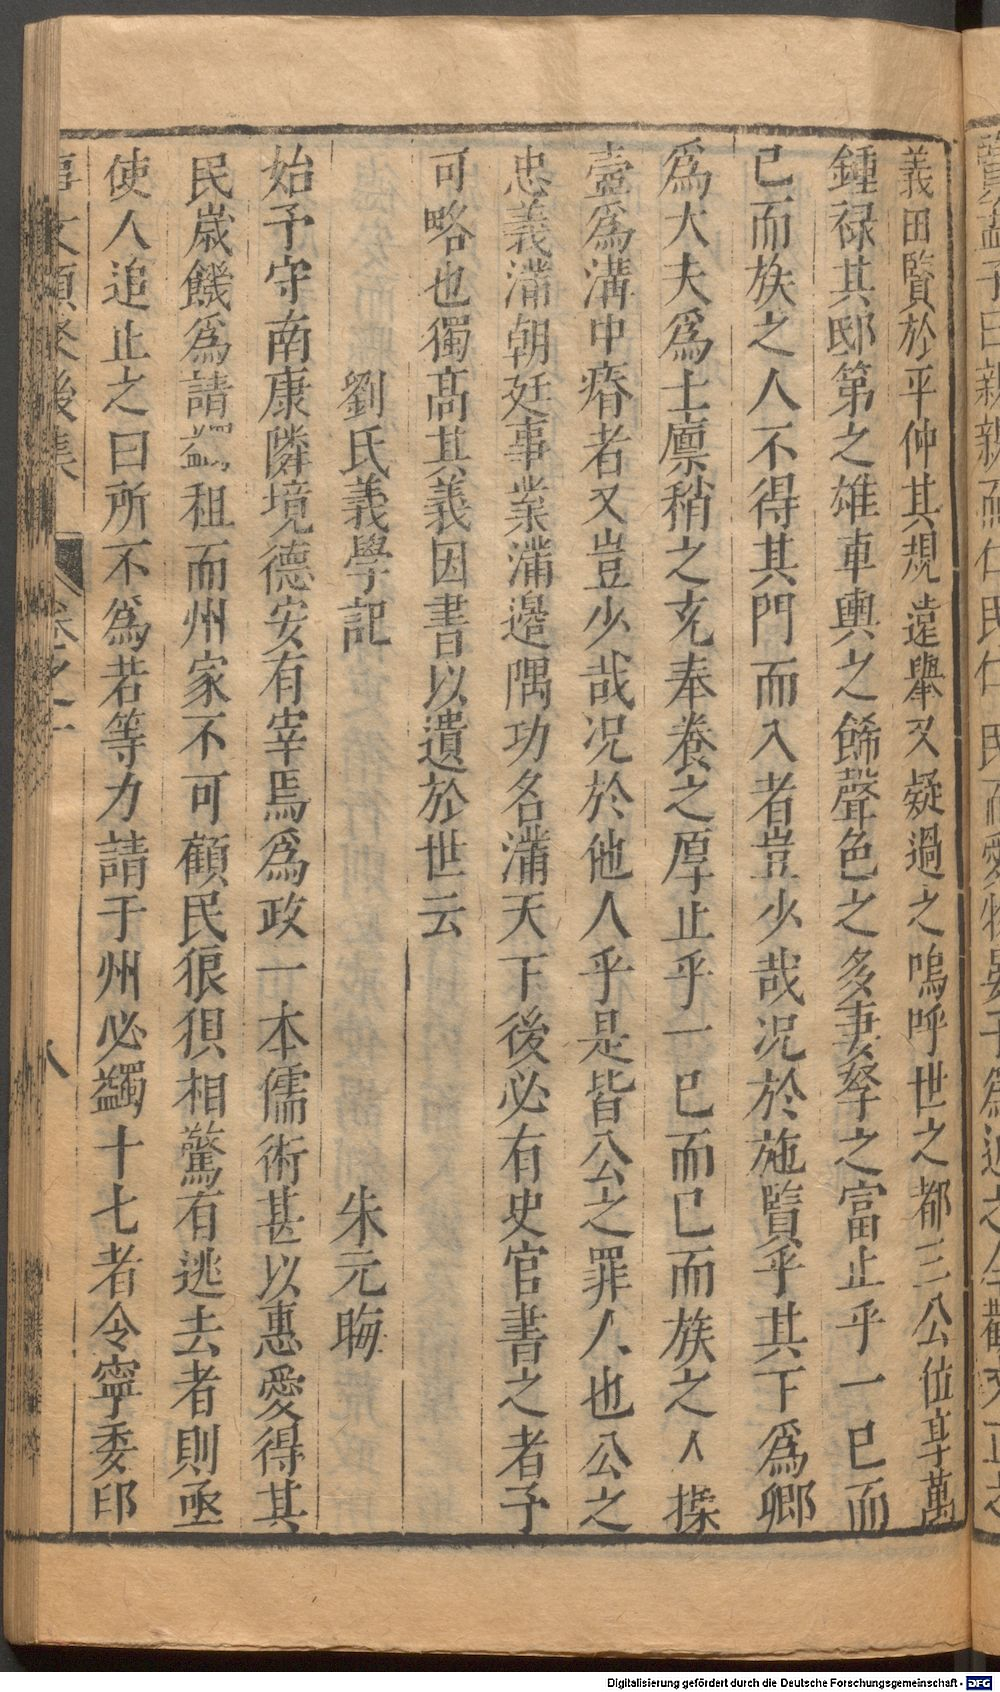 義田賢於平仲其規遠舉又疑過之嗚呼世之都三公位享萬
鍾祿其邸第之雄車輿之餙聲色之多妻孥之富止乎一已而
已而族之人不得其門而入者豈少哉况於施賢乎其下爲卿
爲大夫爲士廩稍之充奉養之厚止乎一已而已而族之人操
壷爲溝中瘠者又豈少哉况於他人乎是皆公之罪人也公之
忠義滿朝廷事業滿邉隅功名滿天下後必有史官書之者予
可略也獨髙其義因書以遺於世云
劉氏義學記 朱元晦
始予守南康隣境德安有宰焉爲政一本儒術甚以惠愛得其
民歲饑爲請蠲租而州家不可顧民狼狽相驚有逃去者則亟
使人追止之曰所不爲若等力請于州必蠲十七者令寧委印
事文類聚後集 卷之十 八
Digitalisierung gefördert durch die Deutsche Forschungsgemeinschaft - DFG